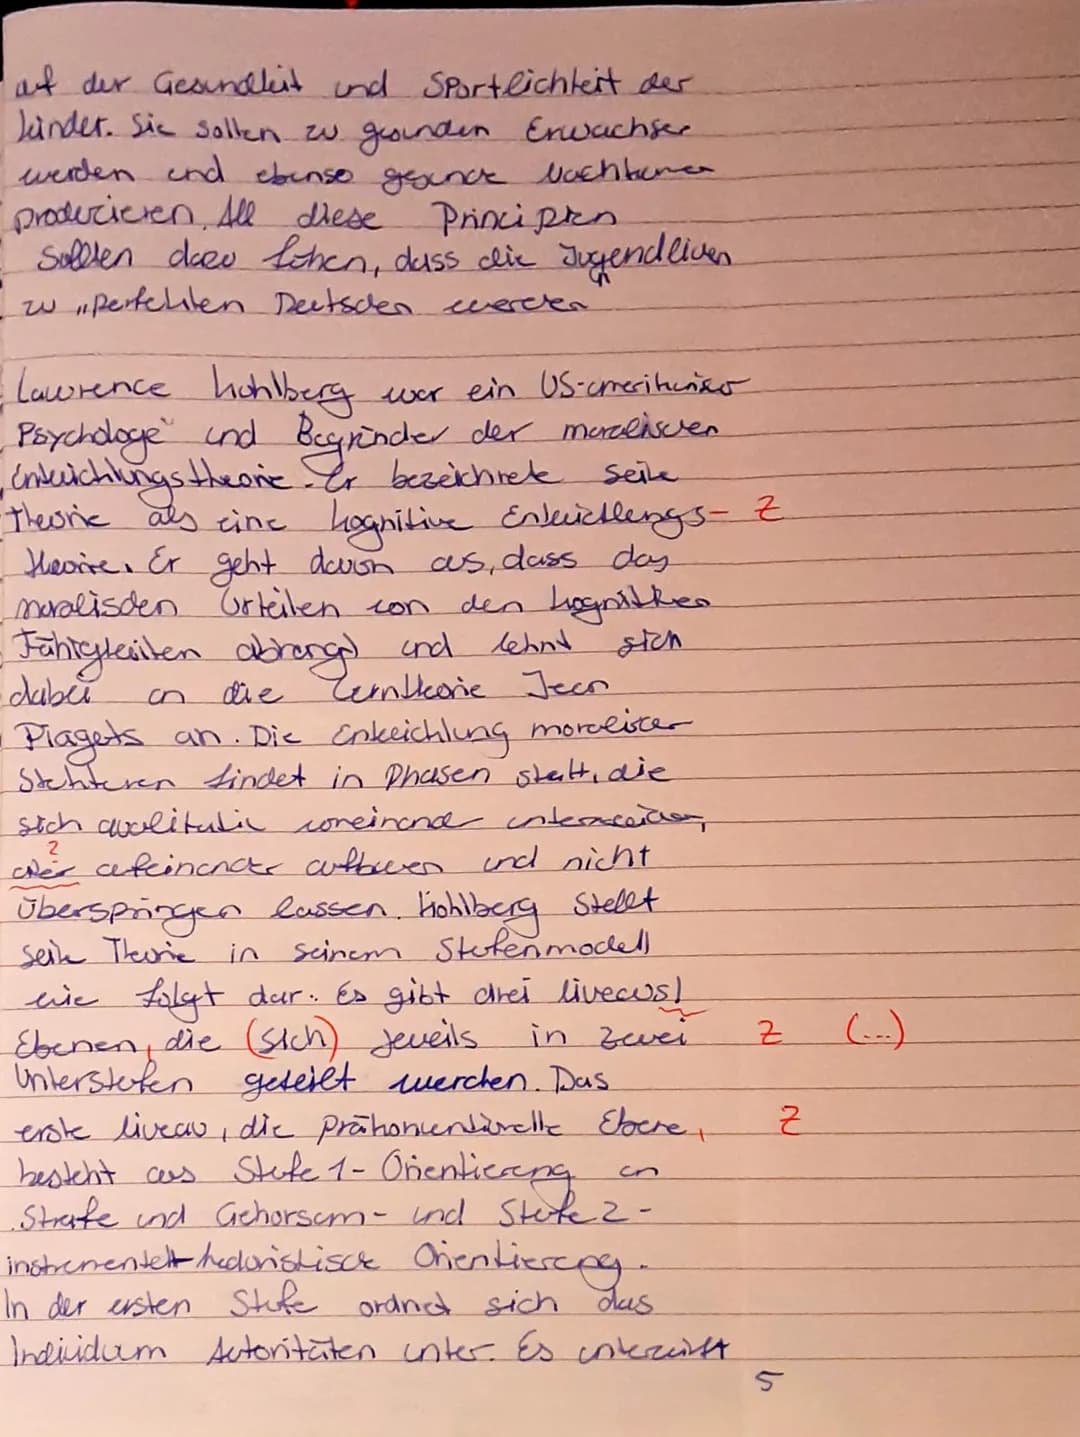 auf der Gesundheit und Sportlichkeit der
Kinder. Sie sollen zu gesunden Erwachsen
werden und ebenso gesunde Nachkomen
producieren. All diese Principien
sollten dazu führen, dass die Jugendlichen
zu "perfekten Deutschen werden
Lawrence Kohlberg war ein US-amerikanischer
Psychologe und Begründer der moralischen
Entwicklungstheorie. Er bezeichnete seine
Theorie als eine kognitive Entwicklungs- Z
theorie. Er geht davon aus, dass das
moralischen Urteilen von den kognitiven
Fähigkeiten abhängt und lehnt sich
dabei an die Lerntheorie Jean
Piagets an. Die Entwicklung moralischer
Strukturen findet in Phasen statt, die
sich qualitativ voneinander unterscheiden,
?
aber aufeinander aufbauen und nicht
überspringen lassen. Kohlberg stellt
seine Theorie in seinem Stufenmodell
wie folgt dar: Es gibt drei Niveaus/
Ebenen, die (sich) jeweils in zwei Z (...)
Unterstufen geteilt werden. Das
erste Niveau, die präkonventionelle Ebene, Z
besteht aus Stufe 1- Orientierung an
Strafe und Gehorsam- und Stufe 2-
instrumentell-hedonistische Orientierung.
In der ersten Stufe ordnet sich das
Individuum Autoritäten unter. Es unterwirft
5